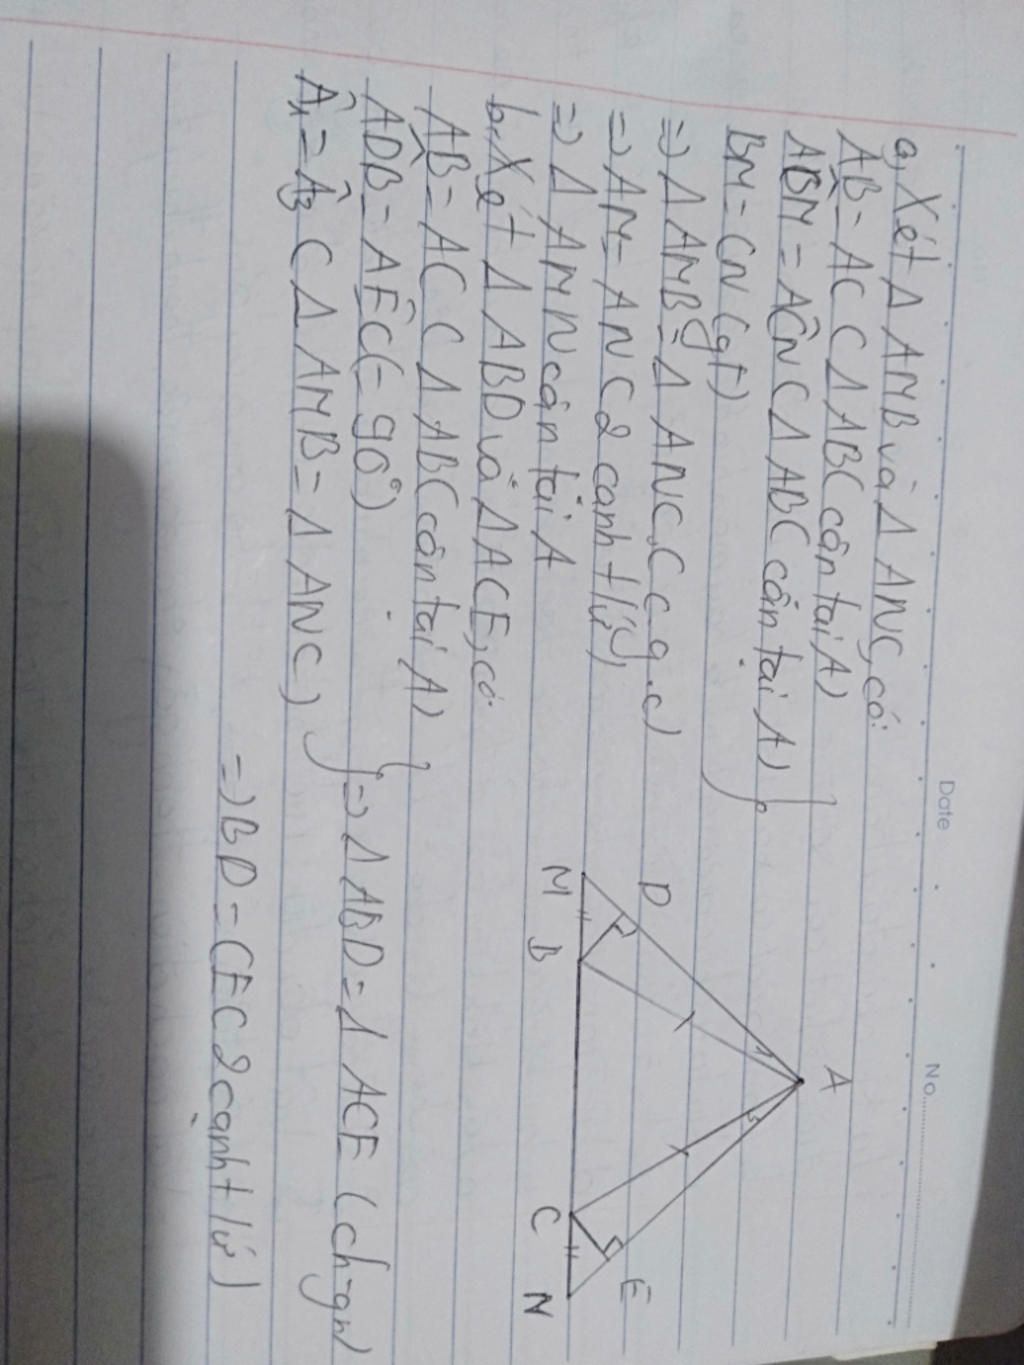 Date No.
a, Xét Δ AMB và Δ ANC, có:
AB = AC (Δ ABC cân tại A)
ABM̂ = AĈN (Δ ABC cân tại A)
BM = CN (gt)
=> Δ AMB = Δ ANC (c.g.c)
=> AM = AN (2 canh t/ứ)
=> Δ AMN cân tải A
b, Xét Δ ABD và Δ ACE, có
AB = AC (Δ ABC cân tai A)
ADB̂ = AÊC (= 90°)
Â1 = Â3 (Δ AMB = Δ ANC)
=> Δ ABD = Δ ACE (ch-gn)
=> BD = CE (2 cạnh t/ứ)
A
1 3
D E
M B C N